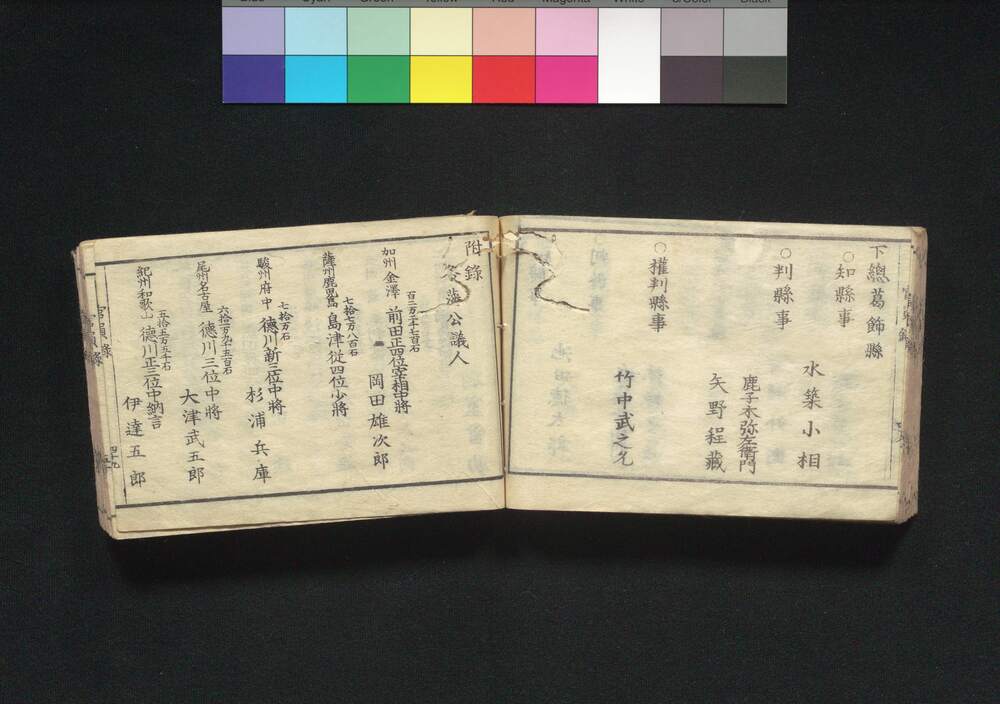 下總葛飾縣
○知縣事
水築小相
○判縣事
鹿子木弥左衞門
矢野程藏
○權判縣事
竹中武之允
附錄
各藩公議人
百二万二千七百石
加州金澤 前田正四位宰相中將
岡田雄次郎
七拾七万八百石
薩州鹿児島 島津從四位少將
七拾万石
駿州府中 德川新三位中將
杉浦兵庫
六拾一万九千五百石
尾州名古屋 德川三位中將
大津武五郎
五拾五万五千石
紀州和歌山 德川正三位中納言
伊達五郎
官員錄
四十九